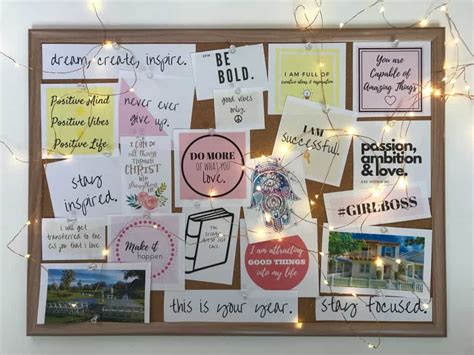 dream, create, inspire.
BE
BOLD.
I AM FULL OF
creative ideas & inspiration
You are
Capable of
Amazing Things
Positive Mind
Positive Vibes
Positive Life
never ever
give up.
good vibes
only
I AM
successful.
passion,
ambition
& love.
I CAN DO
all things
THROUGH
CHRIST
who
strengthens
me
DO MORE
OF WHAT YOU
love.
stay
inspired.
#GIRLBOSS
I will get
transferred to the
job that I want
Make it
happen
I am attracting
GOOD THINGS
into my life
this is your year.
stay focused.